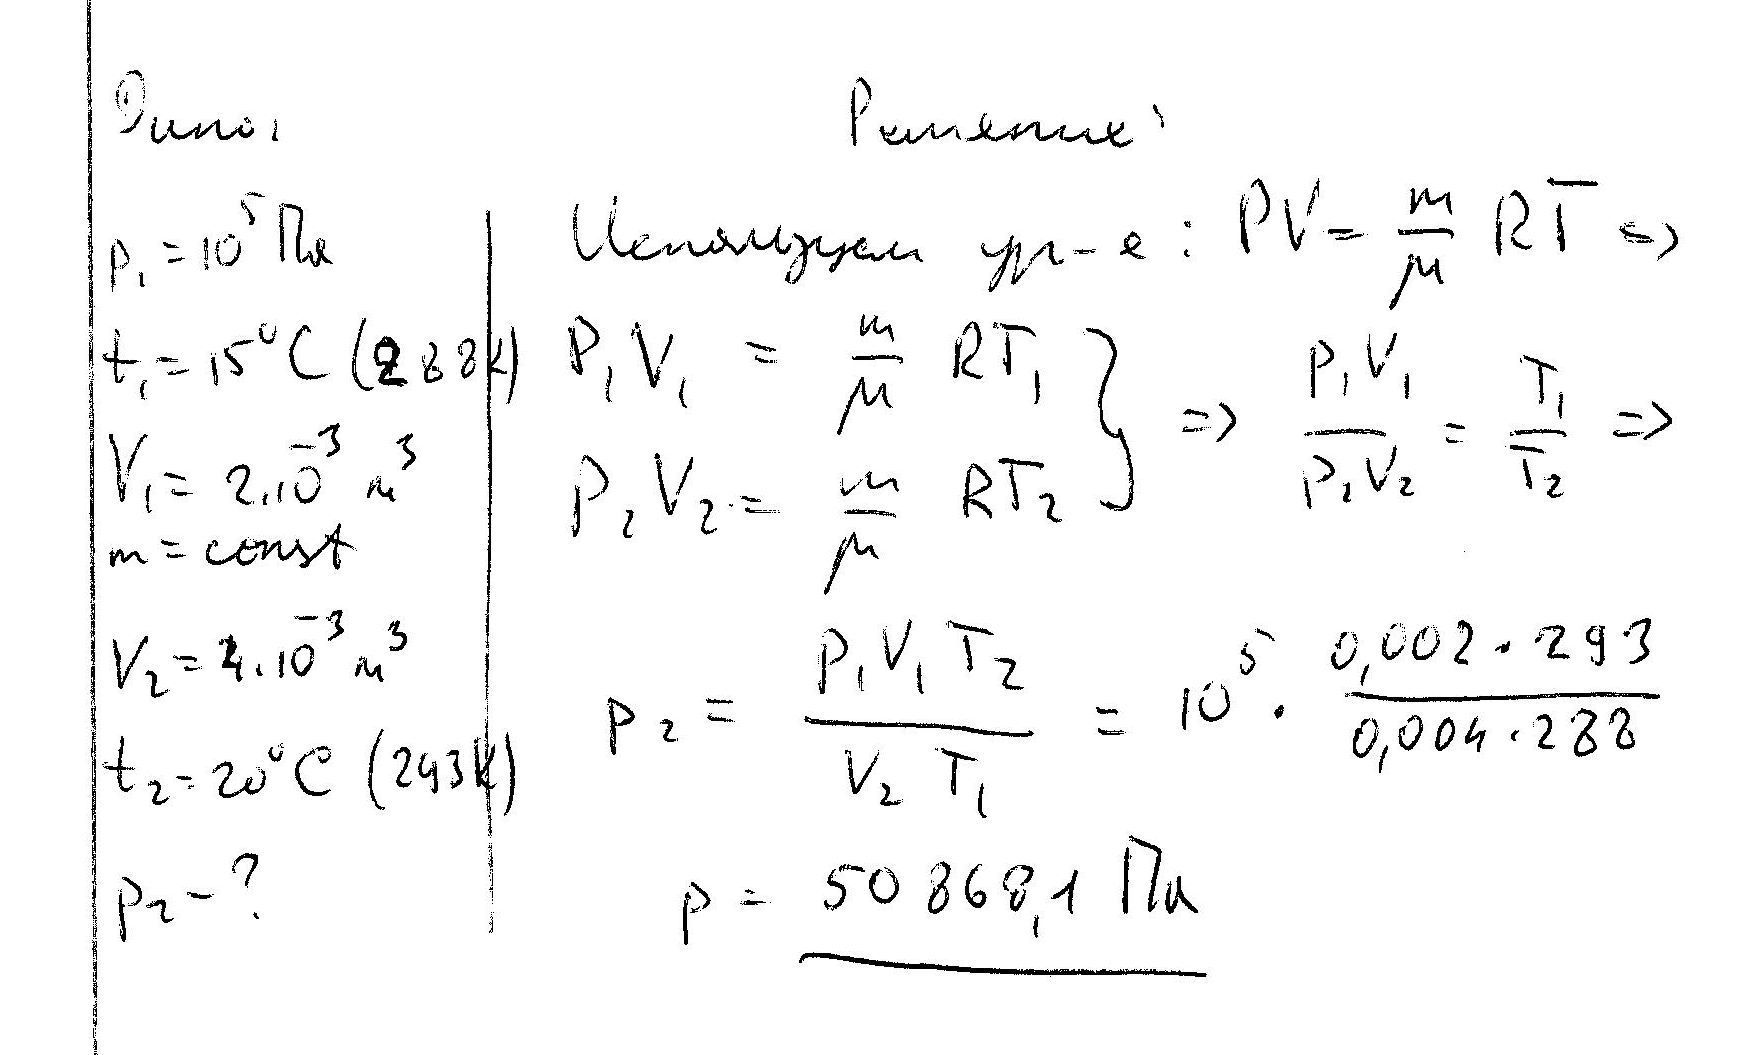 Дано:
Решение:
p₁ = 10⁵ Па
t₁ = 15°C (288К)
V₁ = 2·10⁻³ м³
m = const
V₂ = 4·10⁻³ м³
t₂ = 20°C (293К)
p₂ - ?
Используем ур-е: PV = m/μ RT =>
P₁V₁ = m/μ RT₁ } => P₁V₁/P₂V₂ = T₁/T₂ =>
P₂V₂ = m/μ RT₂
p₂ = P₁V₁T₂/V₂T₁ = 10⁵ · 0,002·293/0,004·288
p = 50868,1 Па